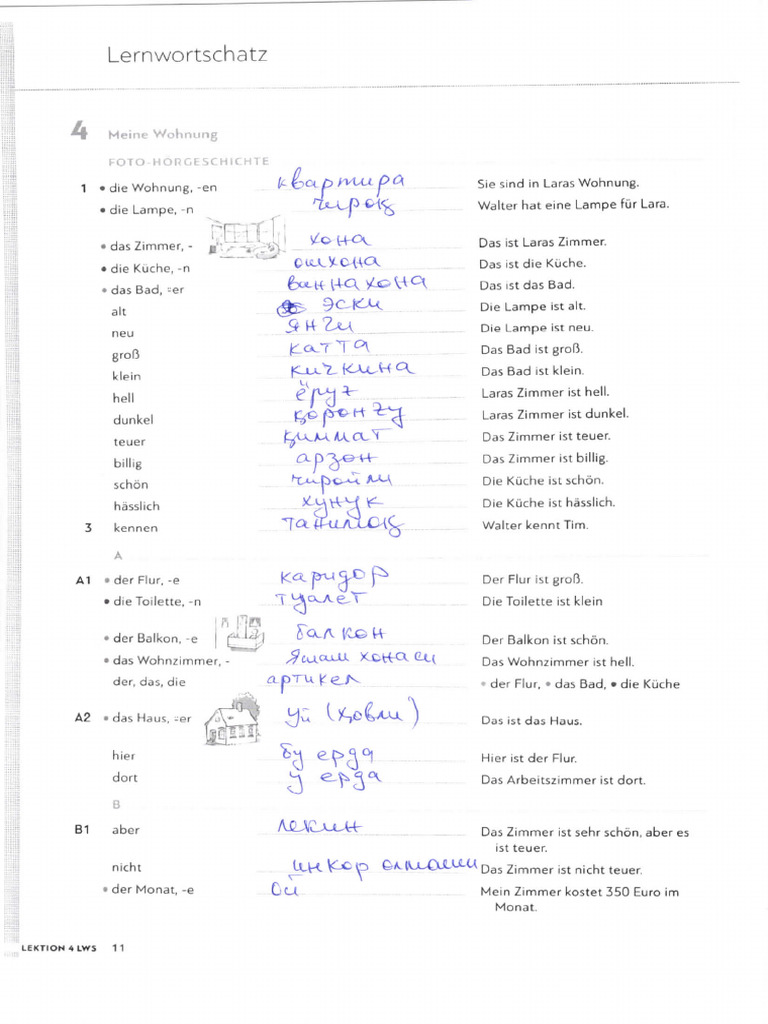 Lernwortschatz
4 Meine Wohnung
FOTO-HÖRGESCHICHTE
1 • die Wohnung, -en квартира Sie sind in Laras Wohnung.
• die Lampe, -n чироқ Walter hat eine Lampe für Lara.
• das Zimmer, - хона Das ist Laras Zimmer.
• die Küche, -n ошхона Das ist die Küche.
• das Bad, ⸚er ваннахона Das ist das Bad.
alt эски Die Lampe ist alt.
neu янги Die Lampe ist neu.
groß катта Das Bad ist groß.
klein кичкина Das Bad ist klein.
hell ёруғ Laras Zimmer ist hell.
dunkel қоронғу Laras Zimmer ist dunkel.
teuer қиммат Das Zimmer ist teuer.
billig арзон Das Zimmer ist billig.
schön чиройли Die Küche ist schön.
hässlich хунук Die Küche ist hässlich.
3 kennen танимоқ Walter kennt Tim.
A
A1 • der Flur, -e каридор Der Flur ist groß.
• die Toilette, -n туалет Die Toilette ist klein
• der Balkon, -e балкон Der Balkon ist schön.
• das Wohnzimmer, - яшаш хонаси Das Wohnzimmer ist hell.
der, das, die артикел • der Flur, • das Bad, • die Küche
A2 • das Haus, ⸚er уй (ҳовли) Das ist das Haus.
hier бу ерда Hier ist der Flur.
dort у ерда Das Arbeitszimmer ist dort.
B
B1 aber лекин Das Zimmer ist sehr schön, aber es
ist teuer.
nicht инкор олмоши Das Zimmer ist nicht teuer.
• der Monat, -e ой Mein Zimmer kostet 350 Euro im
Monat.
LEKTION 4 LWS 11